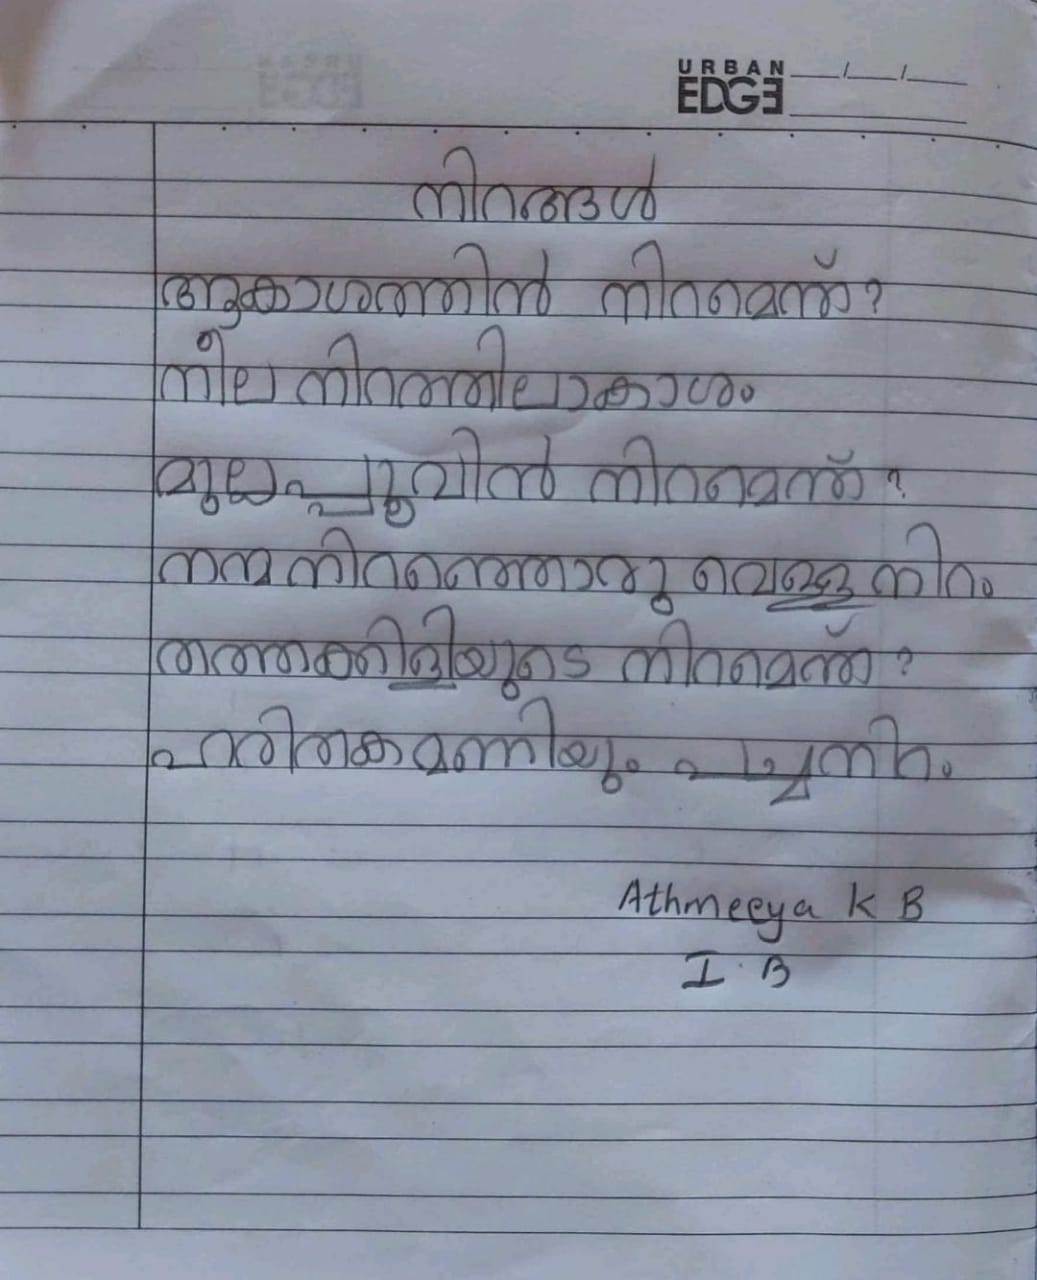 URBAN
EDGE
നിറങ്ങൾ
ആകാശത്തിൻ നിറമെന്ത്?
നീല നിറത്തിലാകാശം
മുല്ലപ്പൂവിൻ നിറമെന്ത്?
നന്മ നിറഞ്ഞൊരു വെള്ള നിറം
തത്തക്കിളിയുടെ നിറമെന്ത്?
ഹരിതകമണിയും പച്ചനിറം.
Athmeeya K B
I B